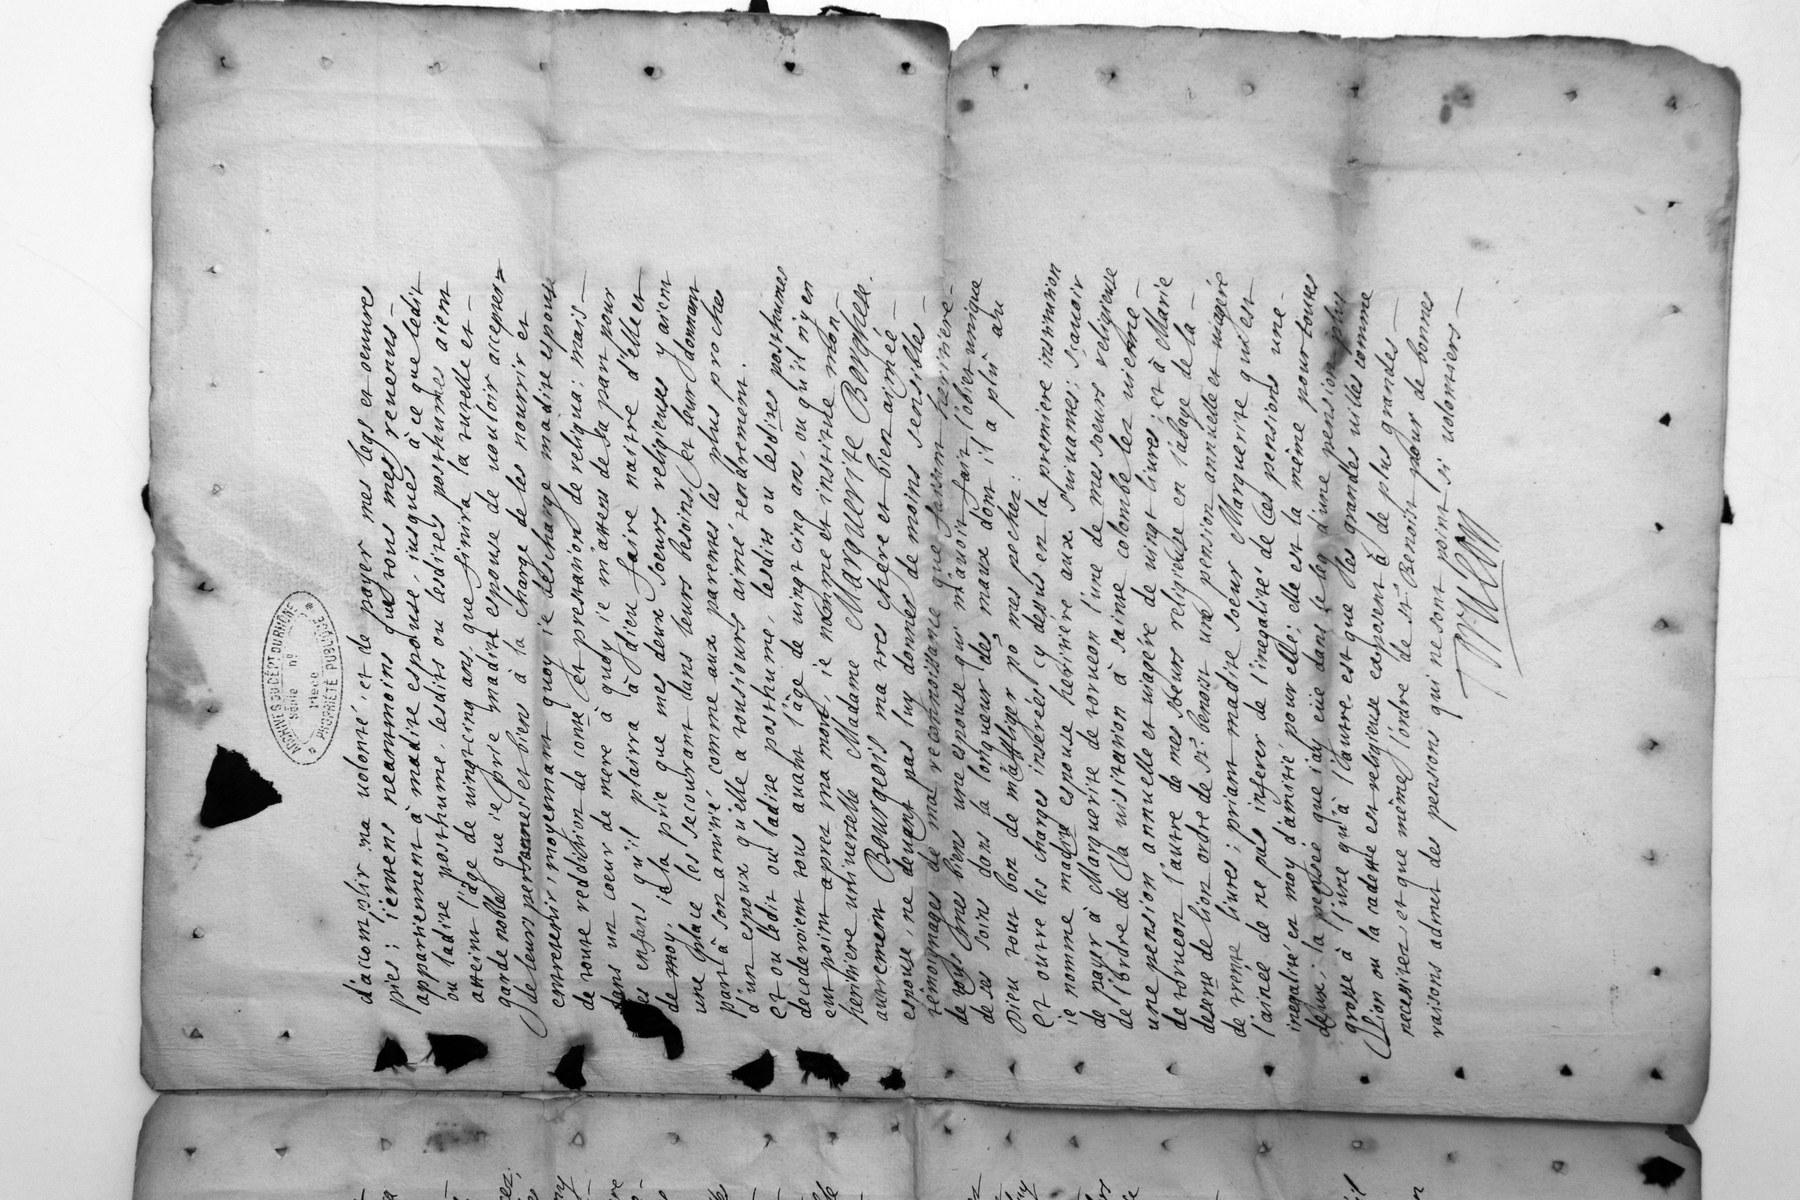 ARCHIVES DU DEPT DU RHÔNE
Série nº
Pièce
PROPRIÉTÉ PUBLIQUE
d'accomplir ma uolonté, et de payer mes legs et oeuure
pies; i'entens neantmoins que tous mes reuenus
appartiennent à madite espouse, iusques à ce que ledit
ou ladite posthume, lesdits ou lesdites posthumes aient
atteint l'âge de uingtcinq ans, que finira la tutelle et
garde noble, que ie prie madite espouse de uouloir accepter
de leurs personnes et biens à la charge de les nourrir et
entretenir, moyennant quoy ie descharge madite espouse
de toute reddition de conte et prestation de reliqua; mais
dans un coeur de mere à quoy ie m'attens de sa part pour
les enfans qu'il plaira à dieu faire naitre d'elle et
de moy, ie la prie que mes deux soeurs religieuses y aient
une place les secourant dans leurs besoins, et leur donnant
part à son amitié comme aux parentes les plus proches
d'un espoux qu'elle a tousiours aimé tendrement.
et ou ledit ou ladite posthume, lesdits ou lesdites posthumes
decederoient tous auant l'âge de uingt cinq ans, ou qu'il n'y en
eut point apres ma mort, ie nomme et institue mon
heritiere uniuerselle Madame Marguerite Berthete
autrement Bourgeois ma tres chere et bien aimée
epouse, ne deuant pas luy donner de moins sensibles
témoignages de ma reconnoissance que faisant heritiere
de tous mes biens une espouse qui m'auoit fait l'obiet unique
de ses soins dans la longueur des maux dont il a plû au
Dieu tout bon de m'affliger po mes pechez:
Et outre les charges inserées cy dessus en la premiere institution
ie nomme madite espouse heritiere aux suiuantes; sçauoir
de payer à Marguerite de torueon l'une de mes soeurs religieuse
de l'ordre de la uisitation à sainte colombe lez uienne
une pension annuelle et uiagere de uingt liures; et à Marie
de torueon l'autre de mes soeurs religieuse en l'abaye de la
deserte de lion ordre de st. benoist une pension annuelle et uiagere
de trente liures; priant madite soeur Marguerite qui est
l'ainée de ne pas inferer de l'inegalité de ces pensions une
inegalité en moy d'amitié pour elle; elle est la même pour toutes
deux; la pensée que i'ay eüe dans le leg d'une pension plus
grosse à l'une qu'à l'autre est que les grandes uilles comme
Lion ou la cadette est religieuse exposent à de plus grandes
necessitez, et que même l'ordre de st. Benoit pour de bonnes
raisons admet des pensions qui ne sont point si uolontiers